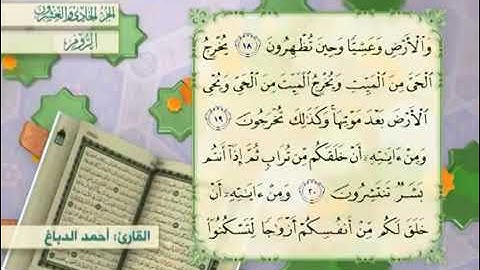 الجزء الحادي والعشرون
الروم
وَالْأَرْضِ وَعَشِيًّا وَحِينَ تُظْهِرُونَ ١٨ يُخْرِجُ
الْحَيَّ مِنَ الْمَيِّتِ وَيُخْرِجُ الْمَيِّتَ مِنَ الْحَيِّ وَيُحْيِ
الْأَرْضَ بَعْدَ مَوْتِهَا وَكَذَٰلِكَ تُخْرَجُونَ ١٩
وَمِنْ ءَايَٰتِهِۦٓ أَنْ خَلَقَكُم مِّن تُرَابٍ ثُمَّ إِذَآ أَنتُم
بَشَرٌ تَنتَشِرُونَ ٢٠ وَمِنْ ءَايَٰتِهِۦٓ أَنْ
خَلَقَ لَكُم مِّنْ أَنفُسِكُمْ أَزْوَٰجًا لِّتَسْكُنُوٓا۟
القارئ: أحمد الدباغ